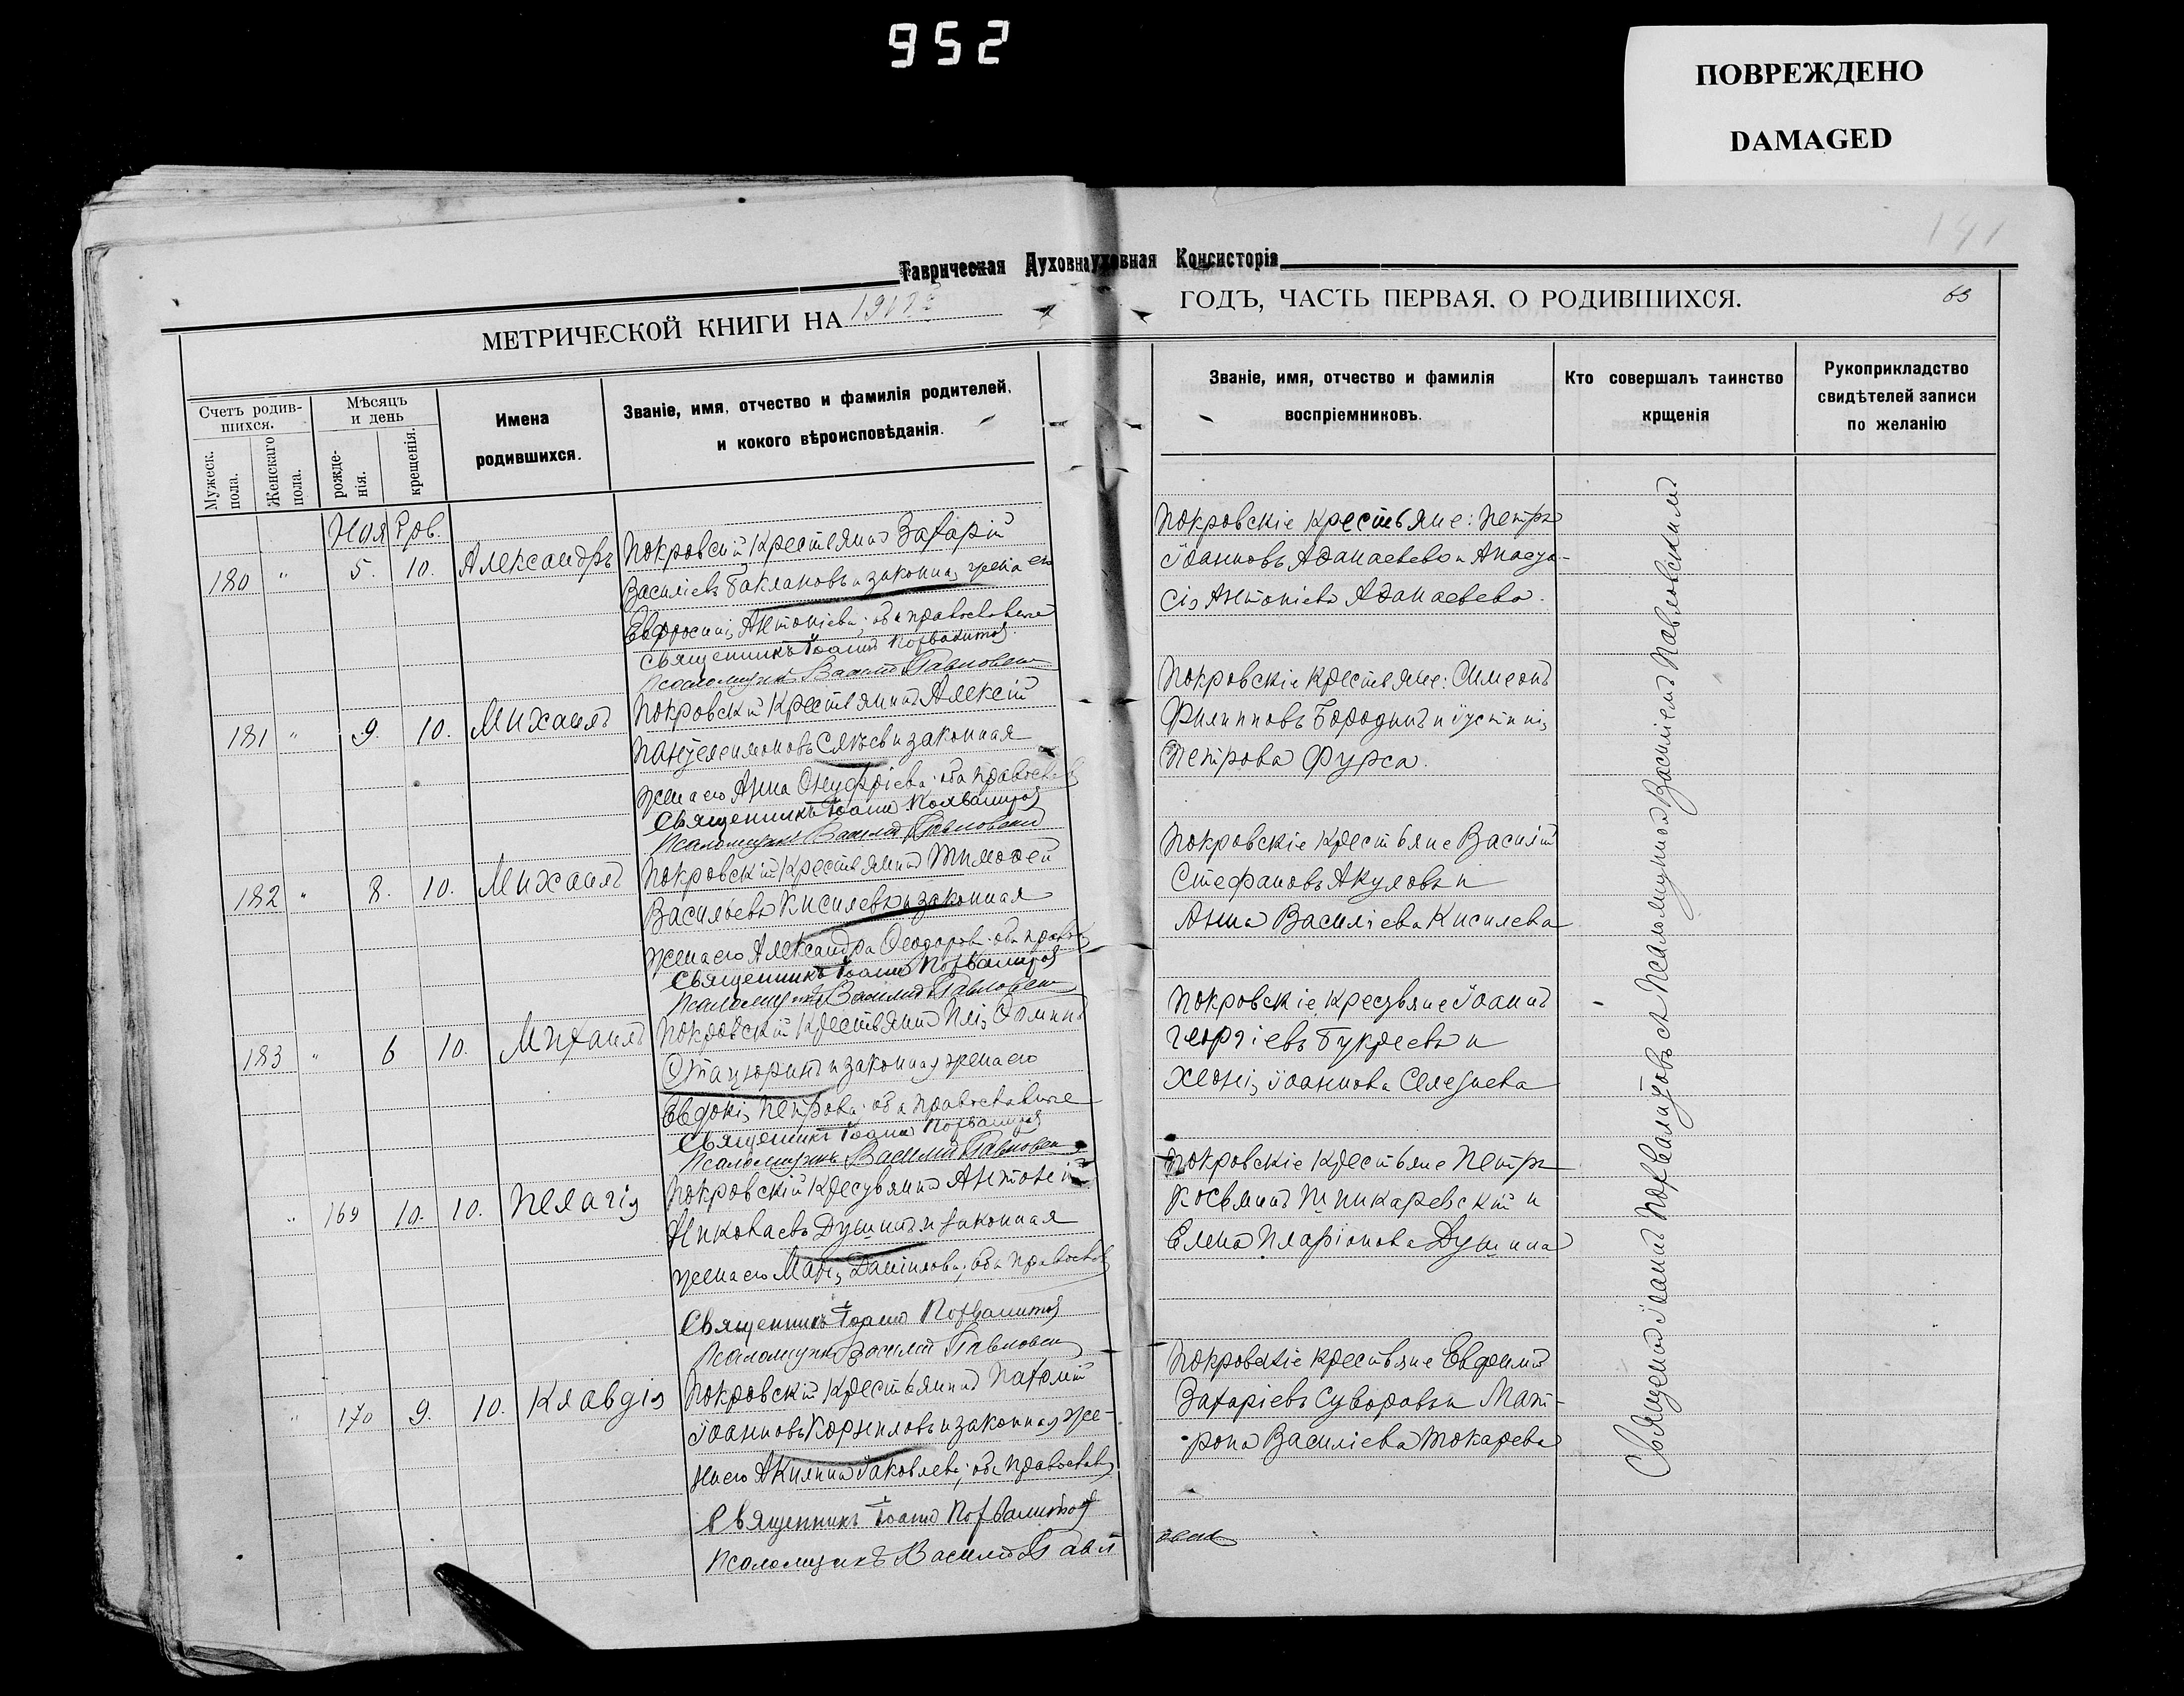 952
ПОВРЕЖДЕНО
DAMAGED
Таврическая Духовная Консисторія
МЕТРИЧЕСКОЙ КНИГИ НА 1912 ГОДЪ, ЧАСТЬ ПЕРВАЯ. О РОДИВШИХСЯ.
63
141
Счетъ родив-
шихся.
Мужеск.
пола.
Женскаго
пола.
Мѣсяцъ
и день
рожде-
нія.
крещенія.
Имена
родившихся.
Званіе, имя, отчество и фамилія родителей,
и кокого вѣроисповѣданія.
Званіе, имя, отчество и фамилія
воспріемниковъ.
Кто совершалъ таинство
крщенія
Рукоприкладство
свидѣтелей записи
по желанію
180 " 5. 10. Александръ
Покровскій крестьянинъ Захарій
Василіевъ Баклановъ и законная жена его
Евфросинія Антоніева; оба православные
Священникъ Іоаннъ Похвалитовъ
Псаломщикъ Василій Павловскій
Покровскіе крестьяне: Петръ
Іоанновъ
Антоніева
181 " 9. 10. Михаилъ
Покровскій крестьянинъ Алексій
Пантелеимоновъ и законная
жена его Анна Онуфріева; оба православ
Священникъ Іоаннъ Похвалитовъ
Псаломщикъ Василій Павловскій
Покровскіе крестьяне: Симеонъ
Филипповъ Бородинъ и Іустинія
Петрова Фурса.
182 " 8. 10. Михаилъ
Покровскій крестьянинъ Тимофей
Васильевъ Киселевъ и законная
жена его Александра Феодорова; оба правос
Священникъ Іоаннъ Похвалитовъ
Псаломщикъ Василій Павловскій
Покровскіе крестьяне Василій
Стефановъ Акуловъ и
Анна Василіева Киселева
183 " 6 10. Михаилъ
Покровскій крестьянинъ
и законная жена его
Евдокія Петрова; оба православные
Священникъ Іоаннъ Похвалитовъ
Псаломщикъ Василій Павловскій
Покровскіе крестьяне Іоаннъ
Георгіевъ Букреевъ и
Іоаннова Селезнева
" 169 10. 10. Пелагія
Покровскій крестьянинъ Антоній
Николаевъ Душинъ и законная
жена его Марія Даніилова; оба православ
Священникъ Іоаннъ Похвалитовъ
Псаломщикъ Василій Павловскій
Покровскіе крестьяне Петръ
Косьминъ и
Елена Иларіонова Душина
" 170 9. 10. Клавдія
Покровскій крестьянинъ Пахомій
Іоанновъ Корниловъ и законная же-
на его Акилина Іаковлева; оба православ
Священникъ Іоаннъ Похвалитовъ
Псаломщикъ Василій Павл
Покровскіе крестьяне Евфимій
Захаріевъ Суворовъ и Мат-
рона Василіева Токарева
Священникъ Іоаннъ Похвалитовъ съ Псаломщикомъ Василіемъ Павловскимъ